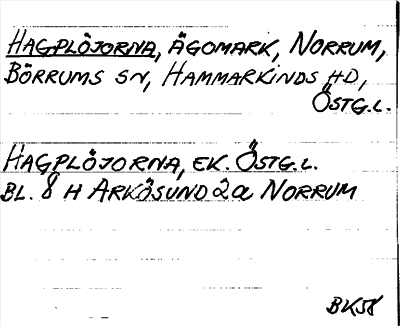 HAGPLÖJORNA, ÄGOMARK, NORRUM,
BÖRRUMS SN, HAMMARKINDS HD,
ÖSTG.L.
HAGPLÖJORNA, EK. ÖSTG.L.
BL. 8 H ARKÖSUND 2a NORRUM
BK58